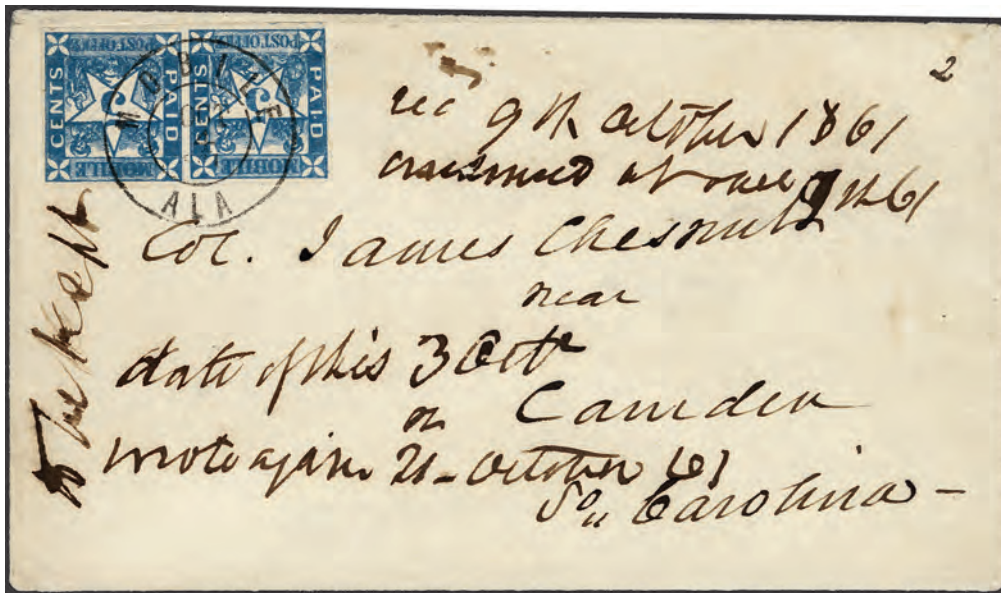 POST OFFICE POST OFFICE
CENTS 5 PAID CENTS 5 PAID
MOBILE MOBILE
MOBILE
OCT
ALA
2
rec 9th October 1861
answered at once 9th 61
Col. James Chesnut
near
date of this 3 Octr
Camden
wrote again 21 - October 61
So,, Carolina -
To be kept